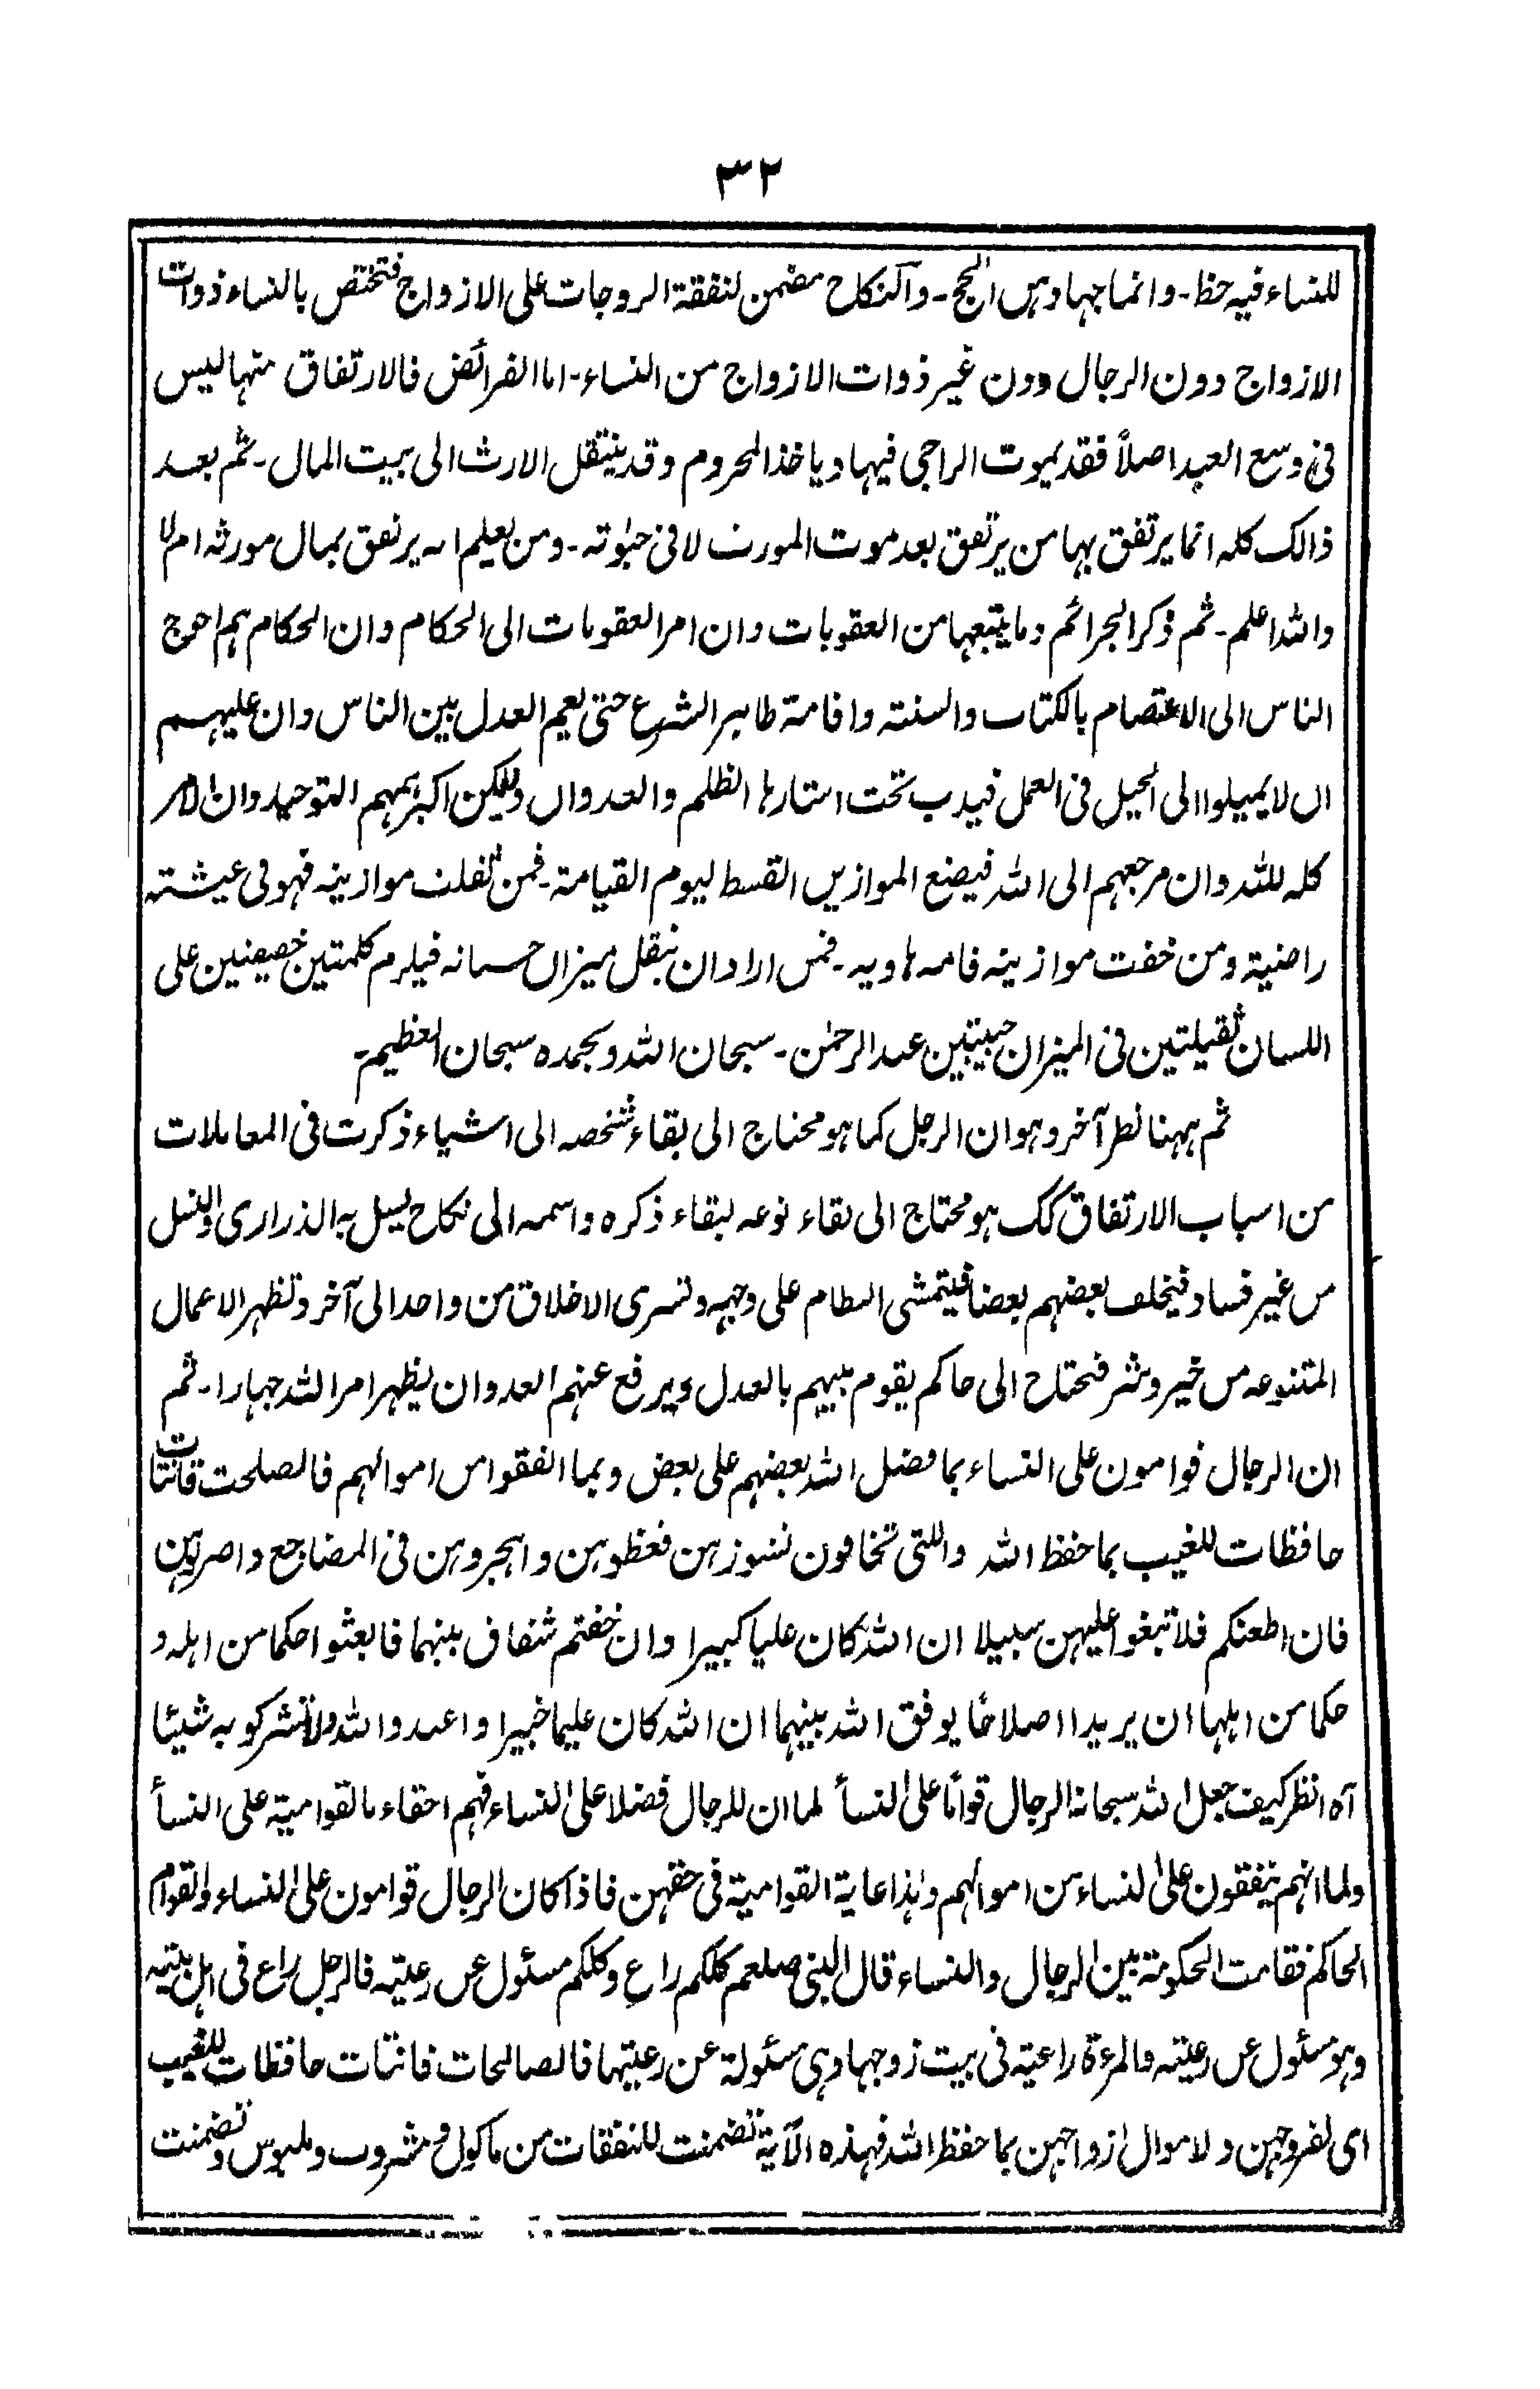 ٣٢
للنساء فيه حظ ـ وانما جهادهن الحج ـ والنكاح مضمن لنفقة الزوجات على الازواج فتختص بالنساء ذوات
الازواج دون الرجال ودون غير ذوات الازواج من النساء ـ اما الفرائض فالارتفاق منها ليس
فى وسع العبد اصلاً فقد يموت الراجى فيها ويأخذ المحروم وقد ينتقل الارث الى بيت المال ـ ثم بعد
ذالك كله انما يرتفق بها من يرتفق بعد موت المورث لا فى حيٰوته ـ ومن يعلم انه يرتفق بمال مورثه ام لا
والله اعلم ـ ثم ذكر الجرائم وما يتبعها من العقوبات وان امر العقوبات الى الحكام وان الحكام هم احوج
الناس الى الاعتصام بالكتاب والسنة واقامة ظاهر الشرع حتى يعم العدل بين الناس وان عليهم
ان لا يميلوا الى الحيل فى العمل فيدب تحت استارها الظلم والعدوان وليكن اكبر همهم التوحيد وان الامر
كله لله وان مرجعهم الى الله فيضع الموازين القسط ليوم القيامة ـ فمن ثقلت موازينه فهو فى عيشة
راضية ومن خفت موازينه فامه هاويه ـ فمن اراد ان يثقل ميزان حسناته فيلزم كلمتين خفيفتين على
اللسان ثقيلتين فى الميزان حبيبتين عند الرحمٰن ـ سبحان الله وبحمده سبحان العظيم ـ
ثم ههنا نظر آخر وهو ان الرجل كما هو محتاج الى بقاء شخصه الى اشياء ذكرت فى المعاملات
من اسباب الارتفاق كك هو محتاج الى بقاء نوعه لبقاء ذكره واسمه الى نكاح به الذرارى والنسل
من غير فساد فيخلف بعضهم بعضا فيتمشى النظام على وجهه وتسرى الاخلاق من واحد الى آخر وتظهر الاعمال
المتنوعه من خير وشر فتحتاج الى حاكم يقوم بينهم بالعدل ويرفع عنهم العدوان ليظهر امر الله جهارا ـ ثم
ان الرجال قوامون على النساء بما فضل الله بعضهم على بعض وبما انفقوا من اموالهم فالصلحت قانتات
حافظات للغيب بما حفظ الله واللتى تخافون نشوزهن فعظوهن واهجروهن فى المضاجع واضربوهن
فان اطعنكم فلا تبغوا عليهن سبيلا ان الله كان عليا كبيرا وان خفتم شقاق بينهما فابعثوا حكما من اهله و
حكما من اهلها ان يريدا اصلاحًا يوفق الله بينهما ان الله كان عليما خبيرا واعبدوا الله ولا تشركو به شيئا
آه انظر كيف جعل الله سبحانه الرجال قوامًا على النسأ لما ان للرجال فضلا على النساء فهم احقاء بالقوامية على النسأ
ولما انهم ينفقون على النساء من اموالهم وهذا غاية القوامية فى حقهن فاذا كان الرجال قوامون على النساء والقوام
الحاكم فقامت الحكومة بين الرجال والنساء قال النبى صلعم كلكم راعٍ وكلكم مسئول عن رعيته فالرجل راع فى اهل بيته
وهو مسئول عن رعيته والمرءة راعية فى بيت زوجها وهى مسئولة عن رعيتها فالصالحات قانتات حافظات للغيب
اى لفروجهن ولاموال ازواجهن بما حفظ الله فهذه الآية تضمنت للنفقات من ماكول ومشروب وملبوس وتضمنت